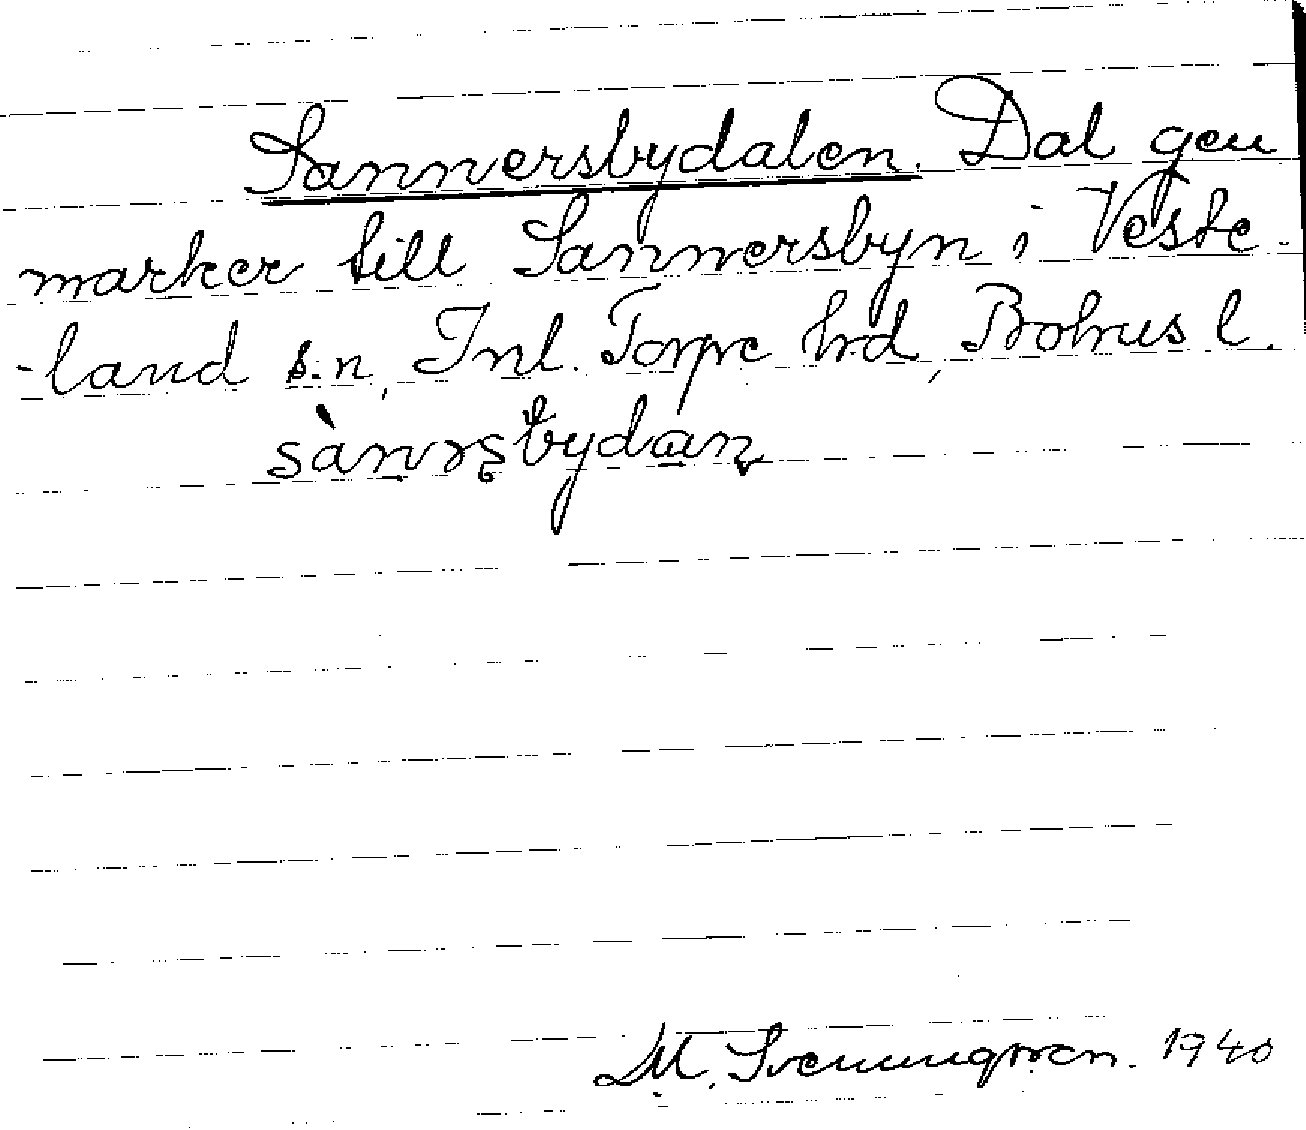 Sannersbydalen. Dal gen
marker till Sannersbyn i Veste-
-land s:n, Inl. Torpe hrd, Bohus l.
M. Svenungsson. 1940